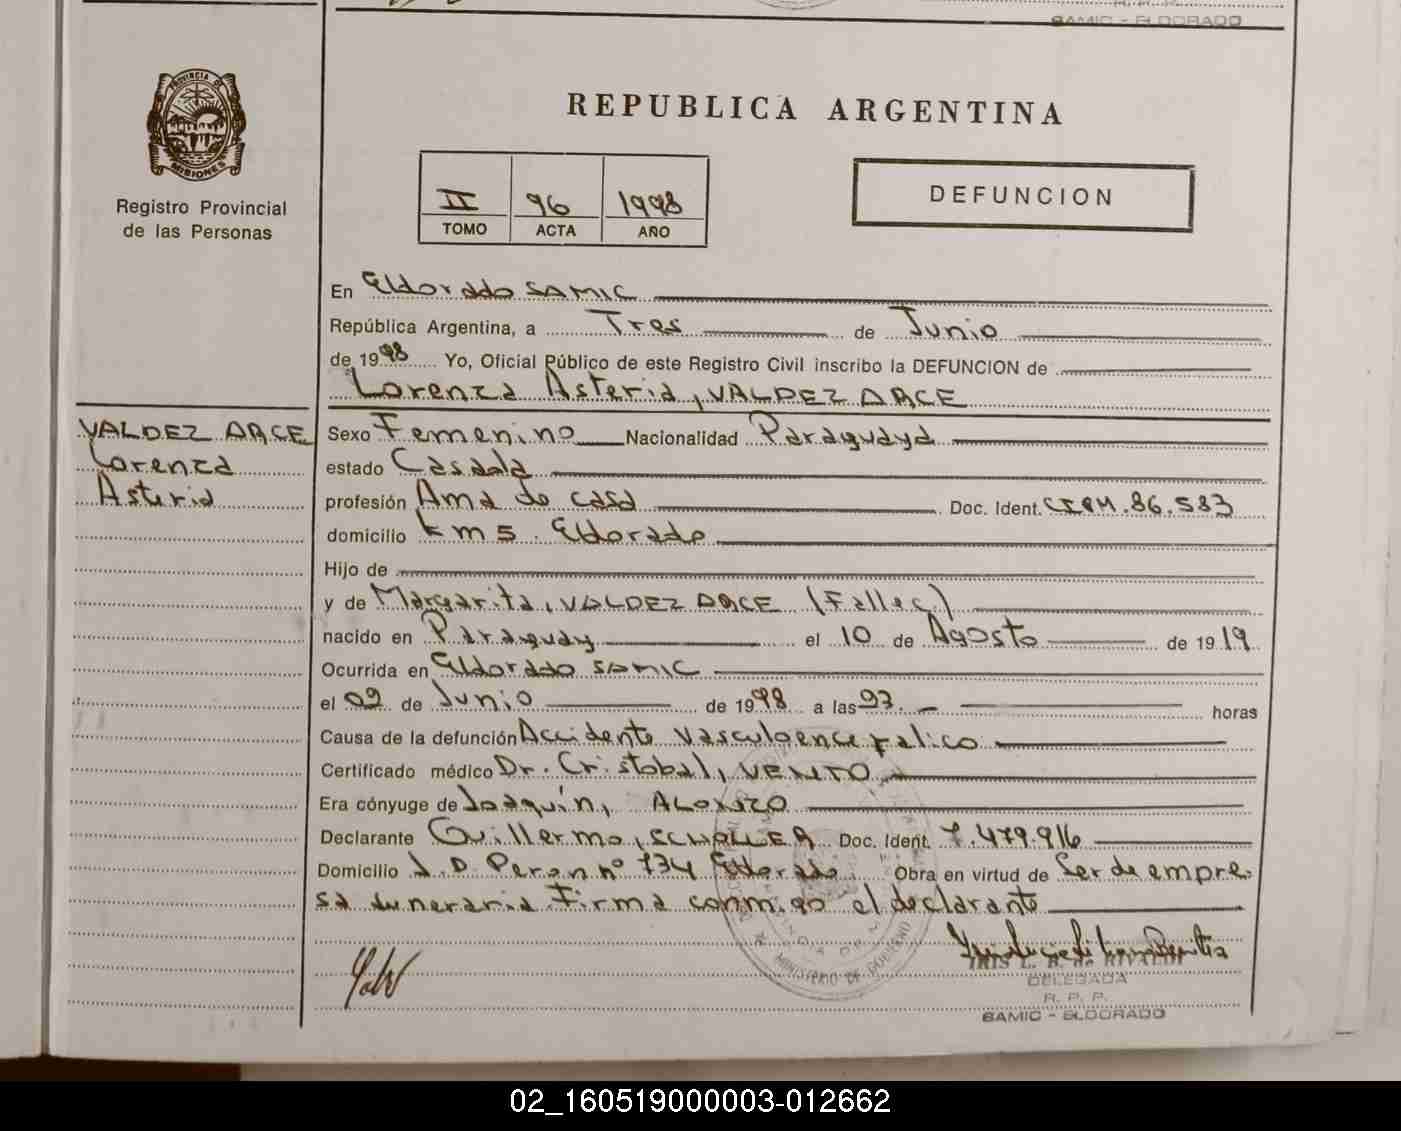 SAMIC - ELDORADO
PROVINCIA DE
MISIONES
Registro Provincial
de las Personas
REPUBLICA ARGENTINA
II 96 1998
TOMO ACTA AÑO
DEFUNCION
En Eldorado SAMIC
República Argentina, a Tres de Junio
de 1998 Yo, Oficial Público de este Registro Civil inscribo la DEFUNCION de
Lorenza Asteria, VALDEZ ARCE
VALDEZ ARCE
Lorenza
Asteria
Sexo Femenino Nacionalidad Paraguaya
estado Casada
profesión Ama de casa Doc. Ident. CIPM.86.583
domicilio km 5. Eldorado
Hijo de
y de Margarita, VALDEZ ARCE (Fallec.)
nacido en Paraguay el 10 de Agosto de 1919
Ocurrida en Eldorado SAMIC
el 02 de Junio de 1998 a las horas
Causa de la defunción Accidente vasculoencefalico
Certificado médico Dr. Cristobal, VENTO
Era cónyuge de Joaquín, ALONZO
Declarante Guillermo, SCHOLLER Doc. Ident. 7.479.916
Domicilio J. D. Peron nº 734 Eldorado. Obra en virtud de Ser de empre-
sa funeraria. Firma conmigo el declarante
MINISTERIO DE GOBIERNO
DELEGADA
R. P. P.
SAMIC - ELDORADO
02_160519000003-012662